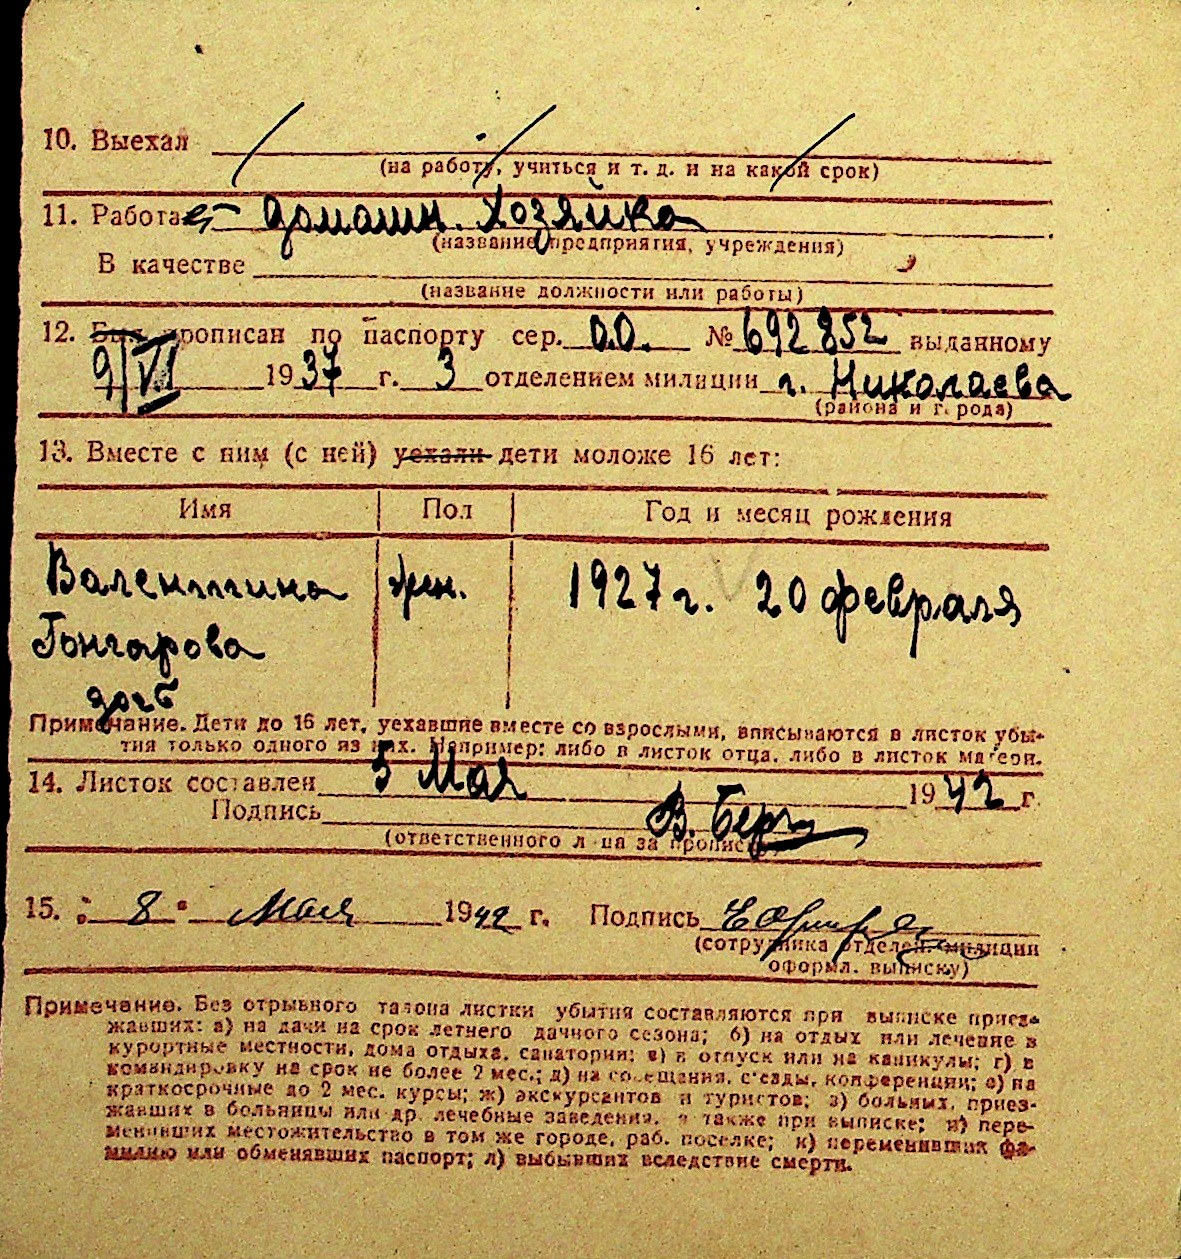 10. Выехал
(на работу, учиться и т. д. и на какой срок)
11. Работает домашн. хозяйка
(название предприятия, учреждения)
В качестве
(название должности или работы)
12. Был прописан по паспорту сер. О.О. № 692852 выданному
9/VI 1937 г. 3 отделением милиции г. Николаева
(района и города)
13. Вместе с ним (с ней) уехали дети моложе 16 лет:
Имя Пол Год и месяц рождения
Валентина жен. 1927 г. 20 февраля
Гончарова
дочь
Примечание. Дети до 16 лет, уехавшие вместе со взрослыми, вписываются в листок убы-
тия только одного из них. Например: либо в листок отца, либо в листок матери.
14. Листок составлен 5 Мая 1942 г.
Подпись В. Берг
(ответственного лица за прописку)
15. "8" Мая 1942 г. Подпись
(сотрудника отделен. милиции
оформл. выписку)
Примечание. Без отрывного талона листки убытия составляются при выписке приез-
жавших: а) на дачи на срок летнего дачного сезона; б) на отдых или лечение в
курортные местности, дома отдыха, санатории; в) в отпуск или на каникулы; г) в
командировку на срок не более 2 мес.; д) на совещания, съезды, конференции; е) на
краткосрочные до 2 мес. курсы; ж) экскурсантов и туристов; з) больных, приез-
жавших в больницы или др. лечебные заведения, а также при выписке; и) пере-
менивших местожительство в том же городе, раб. поселке; к) переменивших фа-
милию или обменявших паспорт; л) выбывших вследствие смерти.